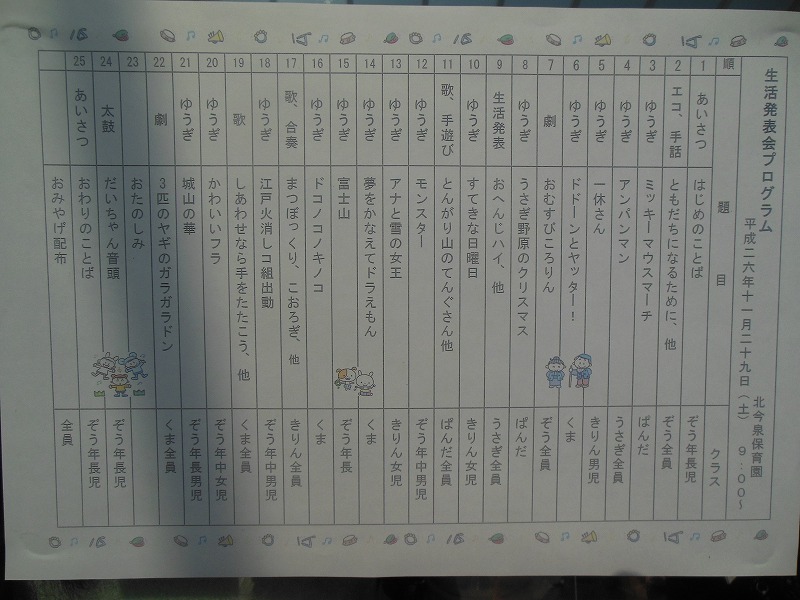 生活発表会プログラム
平成二六年十一月二十九日（土） 9：00～
北今泉保育園
順 題目 クラス
1 あいさつ はじめのことば ぞう年長児
2 エコ、手話 ともだちになるために、他 ぞう全員
3 ゆうぎ ミッキーマウスマーチ ぱんだ
4 ゆうぎ アンパンマン うさぎ全員
5 ゆうぎ 一休さん きりん男児
6 ゆうぎ ドドーンとヤッター！ くま
7 劇 おむすびころりん ぞう全員
8 ゆうぎ うさぎ野原のクリスマス ぱんだ
9 生活発表 おへんじハイ、他 うさぎ全員
10 ゆうぎ すてきな日曜日 きりん女児
11 歌、手遊び とんがり山のてんぐさん他 ぱんだ全員
12 ゆうぎ モンスター ぞう年中男児
13 ゆうぎ アナと雪の女王 きりん女児
14 ゆうぎ 夢をかなえてドラえもん くま
15 ゆうぎ 富士山 ぞう年長
16 ゆうぎ ドコノコノキノコ くま
17 歌、合奏 まつぼっくり、こおろぎ、他 きりん全員
18 ゆうぎ 江戸火消しコ組出動 ぞう年中男児
19 歌 しあわせなら手をたたこう、他 くま全員
20 ゆうぎ かわいいフラ ぞう年中女児
21 ゆうぎ 城山の華 ぞう年長男児
22 劇 3匹のヤギのガラガラドン くま全員
23 おたのしみ
24 太鼓 だいちゃん音頭 ぞう年長児
25 あいさつ おわりのことば ぞう年長児
おみやげ配布 全員